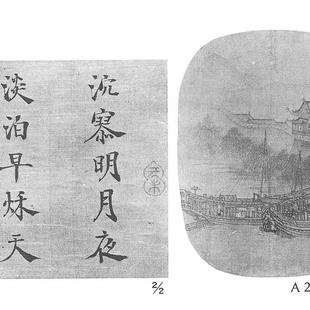 泬寥明月夜
淡泊早秋天
2/2
A 2